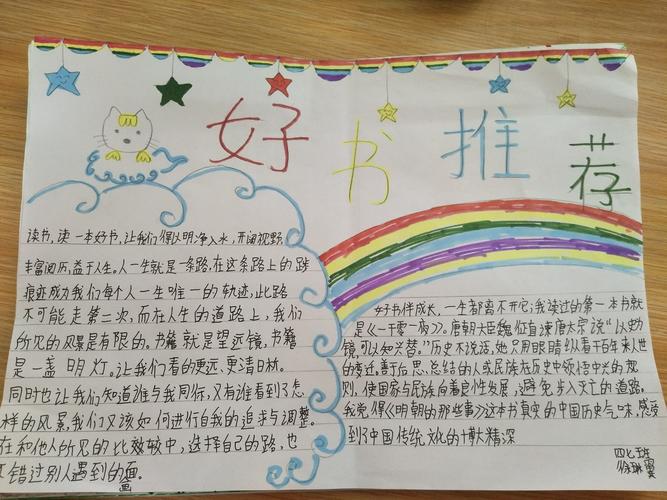 好书推荐
读书,读一本好书,让我们得以明净入水,开阔视野,
丰富阅历,益于人生。人一生就是一条路,在这条路上的跋
痕迹成为我们每个人一生唯一的轨迹,此路
不可能走第二次,而在人生的道路上,我们
所见的风景是有限的。书籍就是望远镜,书籍
是一盏明灯。让我们看的更远、更清日林。
同时也让我们知道谁与我同行,又有谁看到了怎
样的风景,我们又该如何进行自我的追求与调整。
在和他人所见的比较中,选择自己的路,也
错过别人遇到的面。
好书伴成长,一生都离不开它;我读过的第一本书就
是《一千零一夜》。唐朝大臣魏征自谏唐太宗说“以史为
镜,可以知兴替。”历史不说话,她只用眼睛纵看千百年来人世
的变迁,善于后思、总结的人或民族在历史中领悟中兴的规
则,使国家与民族向着良性发展,避免步入灭亡的道路。
我觉得《明朝的那些事》这本书真实的中国历史气味,感受
到了中国传统文化的博大精深
四七班